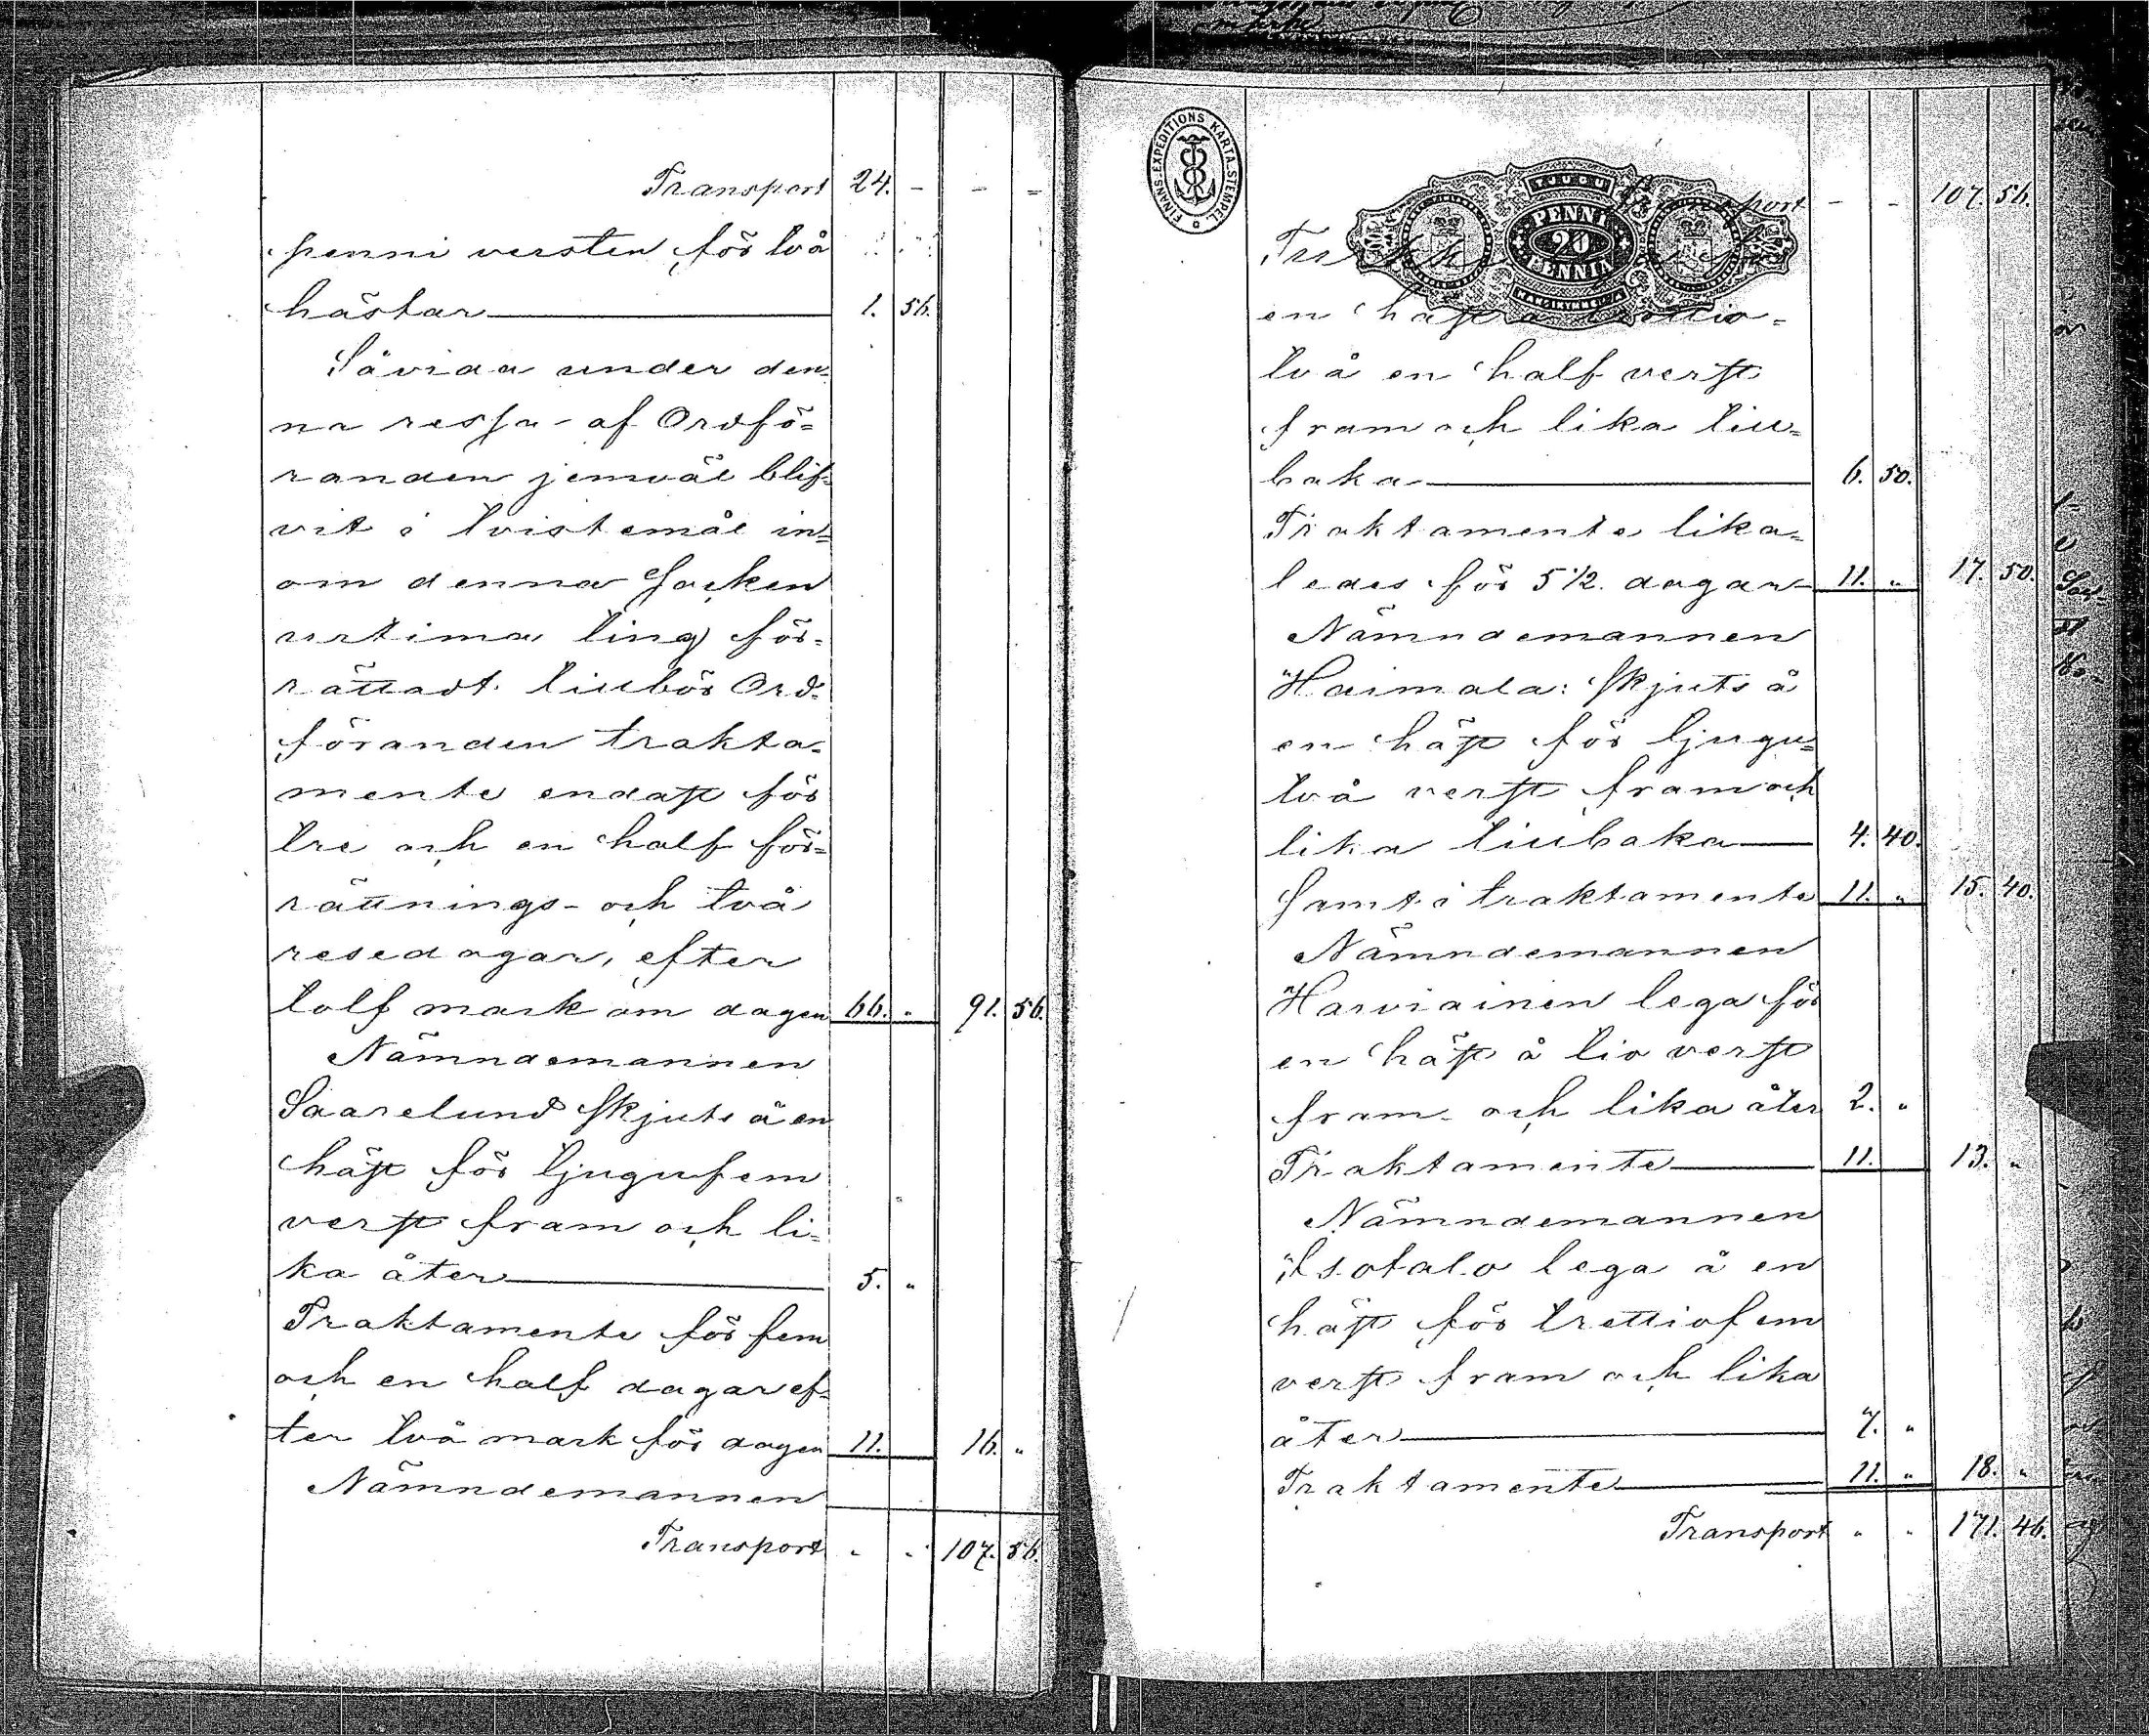 Transport 24. - - -
penni versten för två
hästar 1. 56.
Såvida under den-
na ressa af Ordfö=
randen jemväl blif-
vit i tvistemål in=
om denna Socken
urtima ting för-
rättadt. tillbör Ord-
föranden trakta-
mente endast för
tre och en half för=
rättnings- och två
resedagar, efter
tolf mark om dagen 66. " 91. 56.
Nämndemannen
Saarelund skjuts å en
häst för tjugufem
verst fram och li-
ka åter 5. "
Traktamente för fem
och en half dagar ef-
ter två mark för dagen 11. 16. "
Nämndemannen
Transport " " 107. 56.
FINANS-EXPEDITIONS KARTA-STEMPEL
port - - 107. 56.
PENNI
20
PENNIN
en häst å trettio=
två en half verst
fram och lika till=
baka 6. 50.
Traktamente lika-
ledes för 5 1/2. dagar 11. " 17. 50.
Nämndemannen
Haimala: skjuts å
en häst för tjugu=
två verst fram och
lika tillbaka 4. 40.
Samt i traktamente 11. " 15. 40.
Nämndemannen
Harviainen lega för
en häst å tio verst
fram och lika åter 2. "
Traktamente 11. 13. "
Nämndemannen
Isotalo lega å en
häst för trettiofem
verst fram och lika
åter 7. "
Traktamente 11. " 18. "
Transport " " 171. 46.